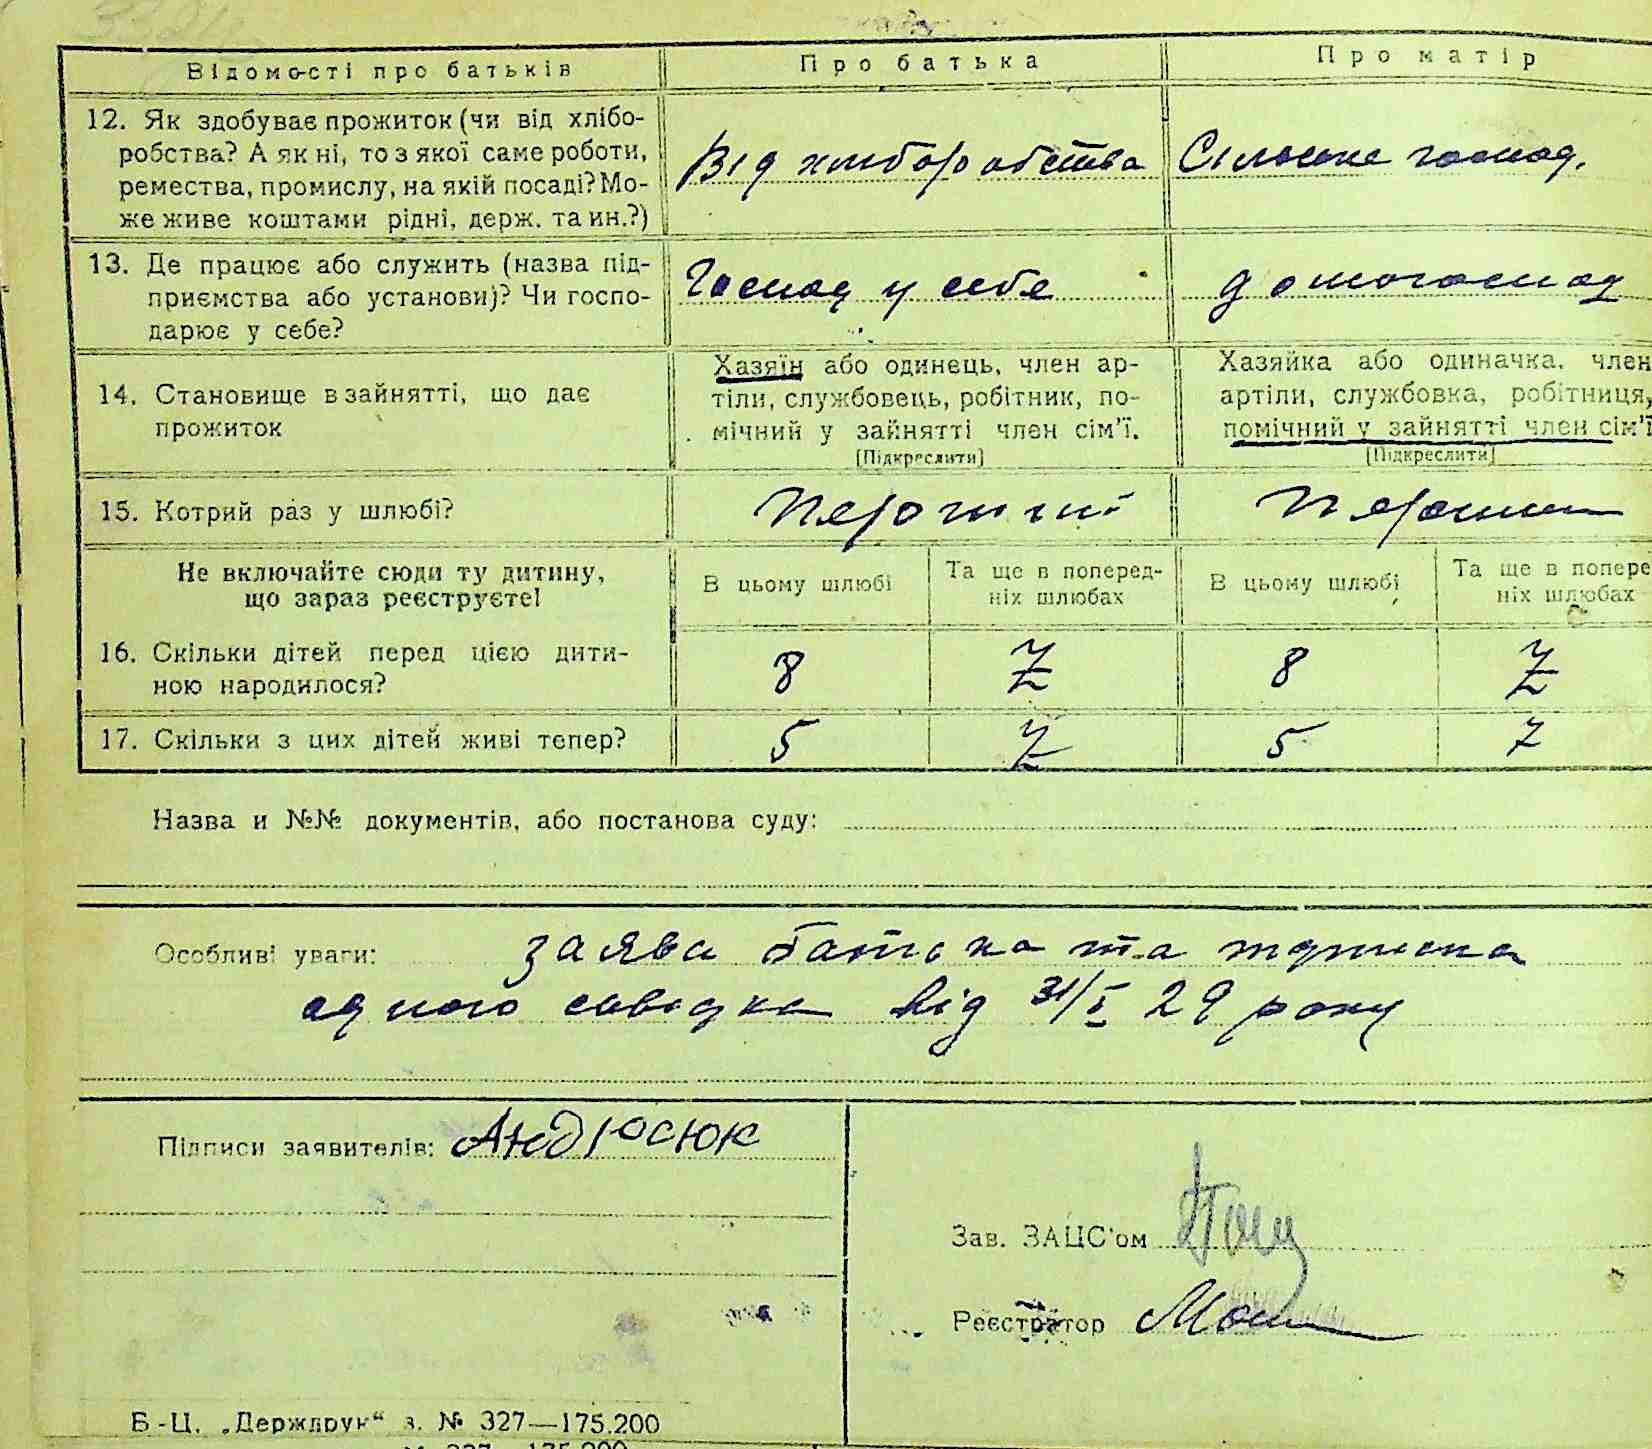 Відомості про батьків Про батька Про матір
12. Як здобуває прожиток (чи від хлібо-
робства? А як ні, то з якої саме роботи,
ремества, промислу, на якій посаді? Мо-
же живе коштами рідні, держ. та ин.?)
Від хліборобства
Сільське господ.
13. Де працює або служить (назва під-
приємства або установи)? Чи госпо-
дарює у себе?
Господ у себе
домогоспод
14. Становище в зайнятті, що дає
прожиток
Хазяїн або одинець, член ар-
тіли, службовець, робітник, по-
мічний у зайнятті член сім'ї.
[Підкреслити]
Хазяйка або одиначка, член
артіли, службовка, робітниця,
помічний у зайнятті член сім'ї
[Підкреслити]
15. Котрий раз у шлюбі?
Перший
Не включайте сюди ту дитину,
що зараз реєструєте!
В цьому шлюбі
Та ще в поперед-
ніх шлюбах
В цьому шлюбі
Та ще в попере
ніх шлюбах
16. Скільки дітей перед цією дити-
ною народилося?
8 8
17. Скільки з цих дітей живі тепер?
5 5
Назва и №№ документів, або постанова суду:
Особливі уваги: заява батька та
одного свідка від 31/I 29 року
Підписи заявителів: Андріюсюк
Зав. ЗАЦС'ом
Реєстратор
Б-Ц. „Держдрук“ з. № 327—175.200